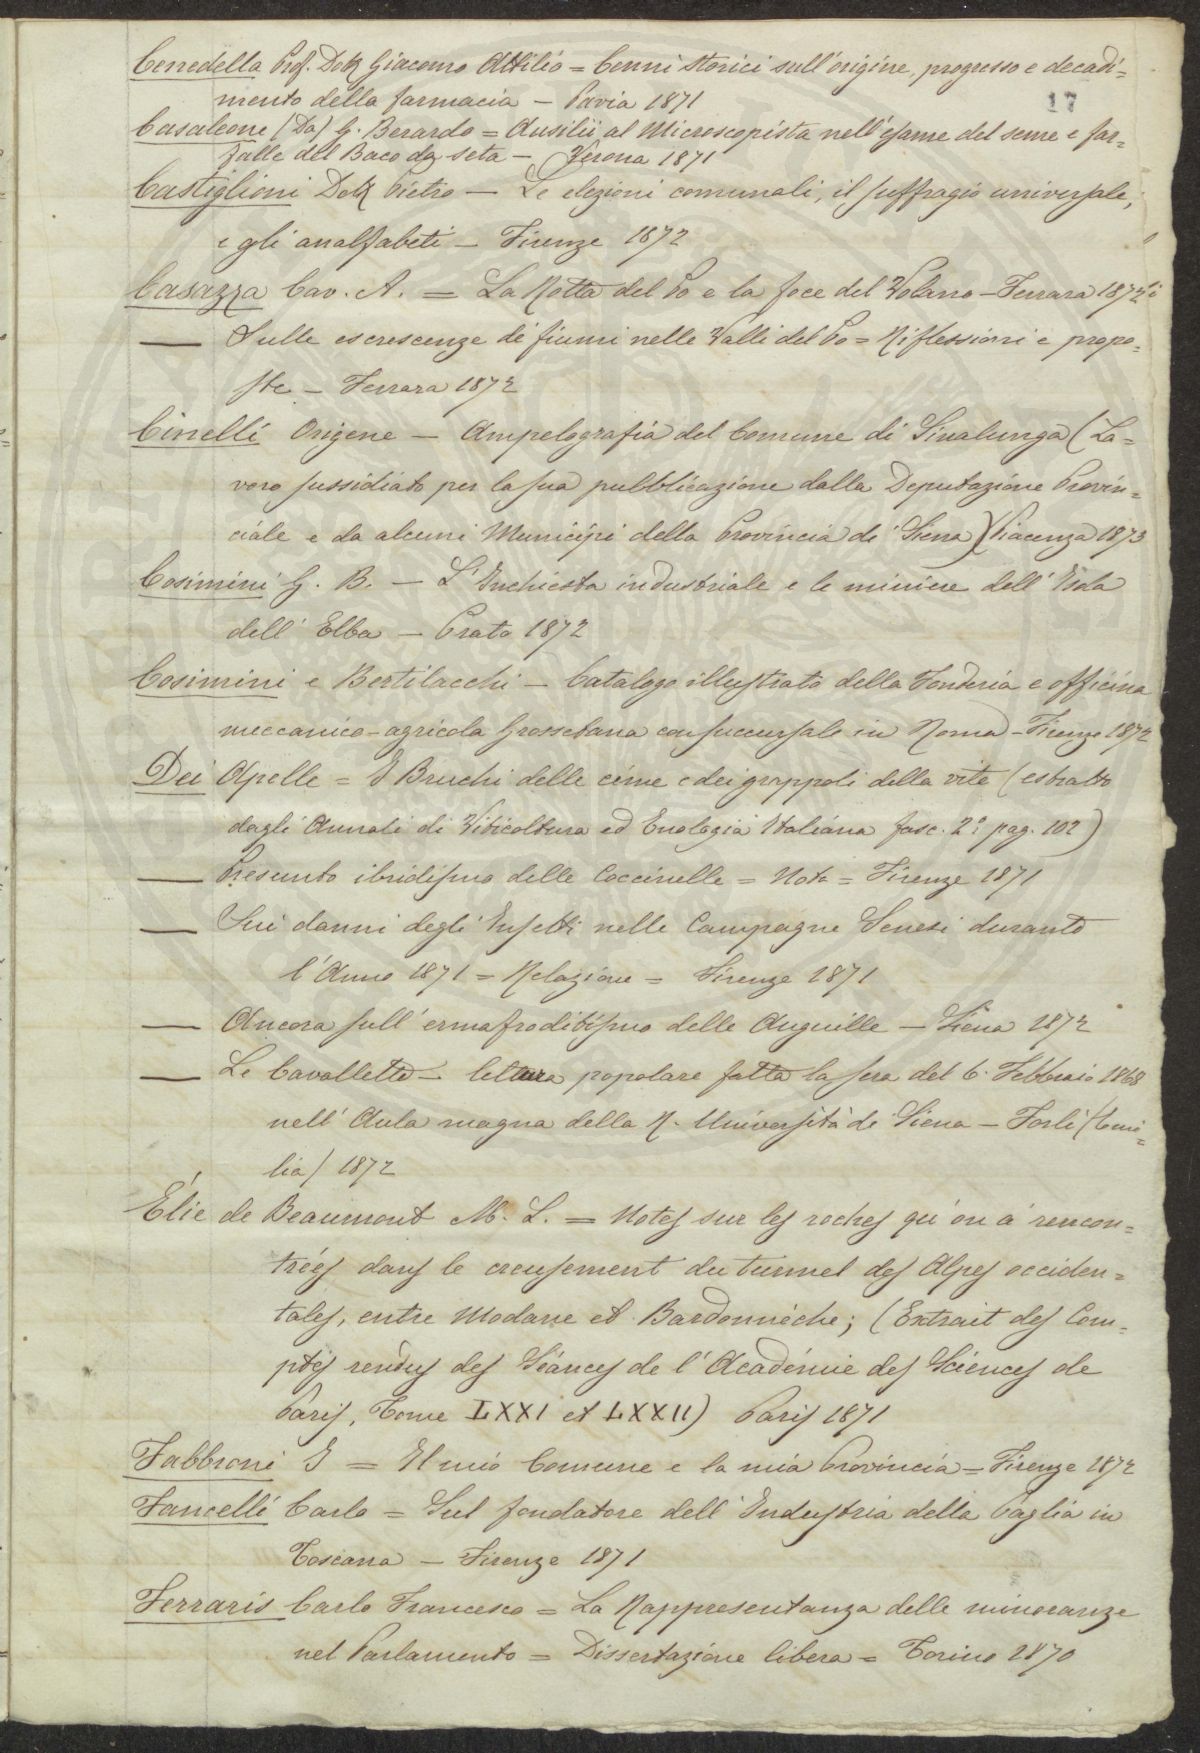 Cenedella Prof. Dott. Giacomo Attilio = Cenni storici sull'origine, progresso e decadi=
mento della farmacia — Pavia 1871
17
Casaleone (Da) G. Berardo = Ausilii al Microscopista nell'esame del seme e far=
falle del Baco da seta — Verona 1871
Castiglioni Dott. Pietro — Le elezioni comunali, il suffragio universale,
e gli analfabeti — Firenze 1872
Casazza Cav. A. = La Rotta del Po e la foce del Volano — Ferrara 1872
— Sulle escrescenze di fiumi nelle Valli del Po = Riflessioni e propo=
ste — Ferrara 1872
Cinelli Origene — Ampelografia del Comune di Sinalunga (La=
voro sussidiato per la sua pubblicazione dalla Deputazione Provin=
ciale e da alcuni Municipi della Provincia di Siena) Piacenza 1873
Cosimini G. B. — L'Inchiesta industriale e le miniere dell'Isola
dell'Elba — Prato 1872
Cosimini e Bertilacchi — Catalogo illustrato della Fonderia e officina
meccanico-agricola Grossetana con succursale in Roma — Firenze 1872
Dei Apelle = I Bruchi delle cime e dei grappoli della vite (estratto
dagli Annali di Viticoltura ed Enologia Italiana fasc. 2º pag. 102)
— Presunto ibridismo delle Coccinelle = Nota = Firenze 1871
— Sui danni degli Insetti nelle Campagne Senesi durante
l'Anno 1871 = Relazione = Firenze 1871
— Ancora sull'ermafroditismo delle Anguille — Siena 1872
— Le Cavallette — lettura popolare fatta la sera del 6. Febbraio 1868
nell'Aula magna della R. Università di Siena — Forlì (Emi=
lia) 1872
Élie de Beaumont M. L. = Notes sur les roches qu'on a rencon=
trées dans le creusement du tunnel des Alpes occiden=
tales, entre Modane et Bardonnéche; (Extrait des Com=
ptes rendus des Séances de l'Académie des Sciences de
Paris, Tome LXXI et LXXII) Paris 1871
Fabbroni G = Il mio Comune e la mia Provincia = Firenze 1872
Fancelli Carlo = Sul fondatore dell'Industria della Paglia in
Toscana — Firenze 1871
Ferraris Carlo Francesco = La Rappresentanza delle minoranze
nel Parlamento = Dissertazione libera = Torino 1870